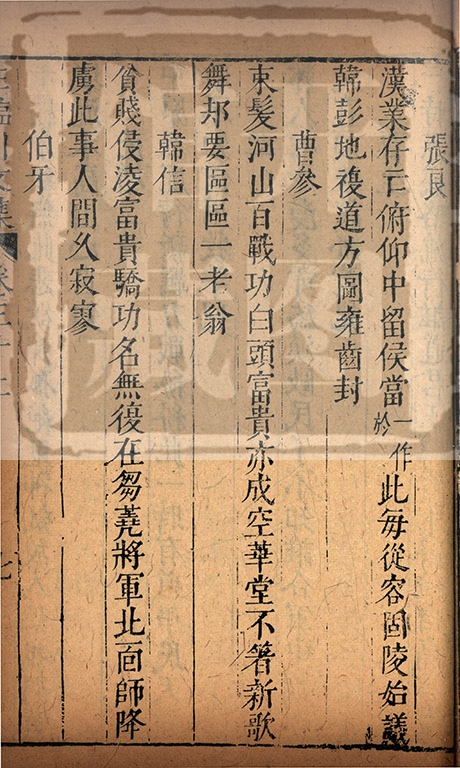 張良
漢業存亡俯仰中留侯當一作於此每從容固陵始議
韓彭地複道方圖雍齒封
曹參
束髮河山百戰功白頭富貴亦成空華堂不著新歌
舞却要區區一老翁
韓信
貧賤侵凌富貴驕功名無復在芻蕘將軍北面師降
虜此事人間久寂寥
伯牙
王臨川文集 卷三十二 七